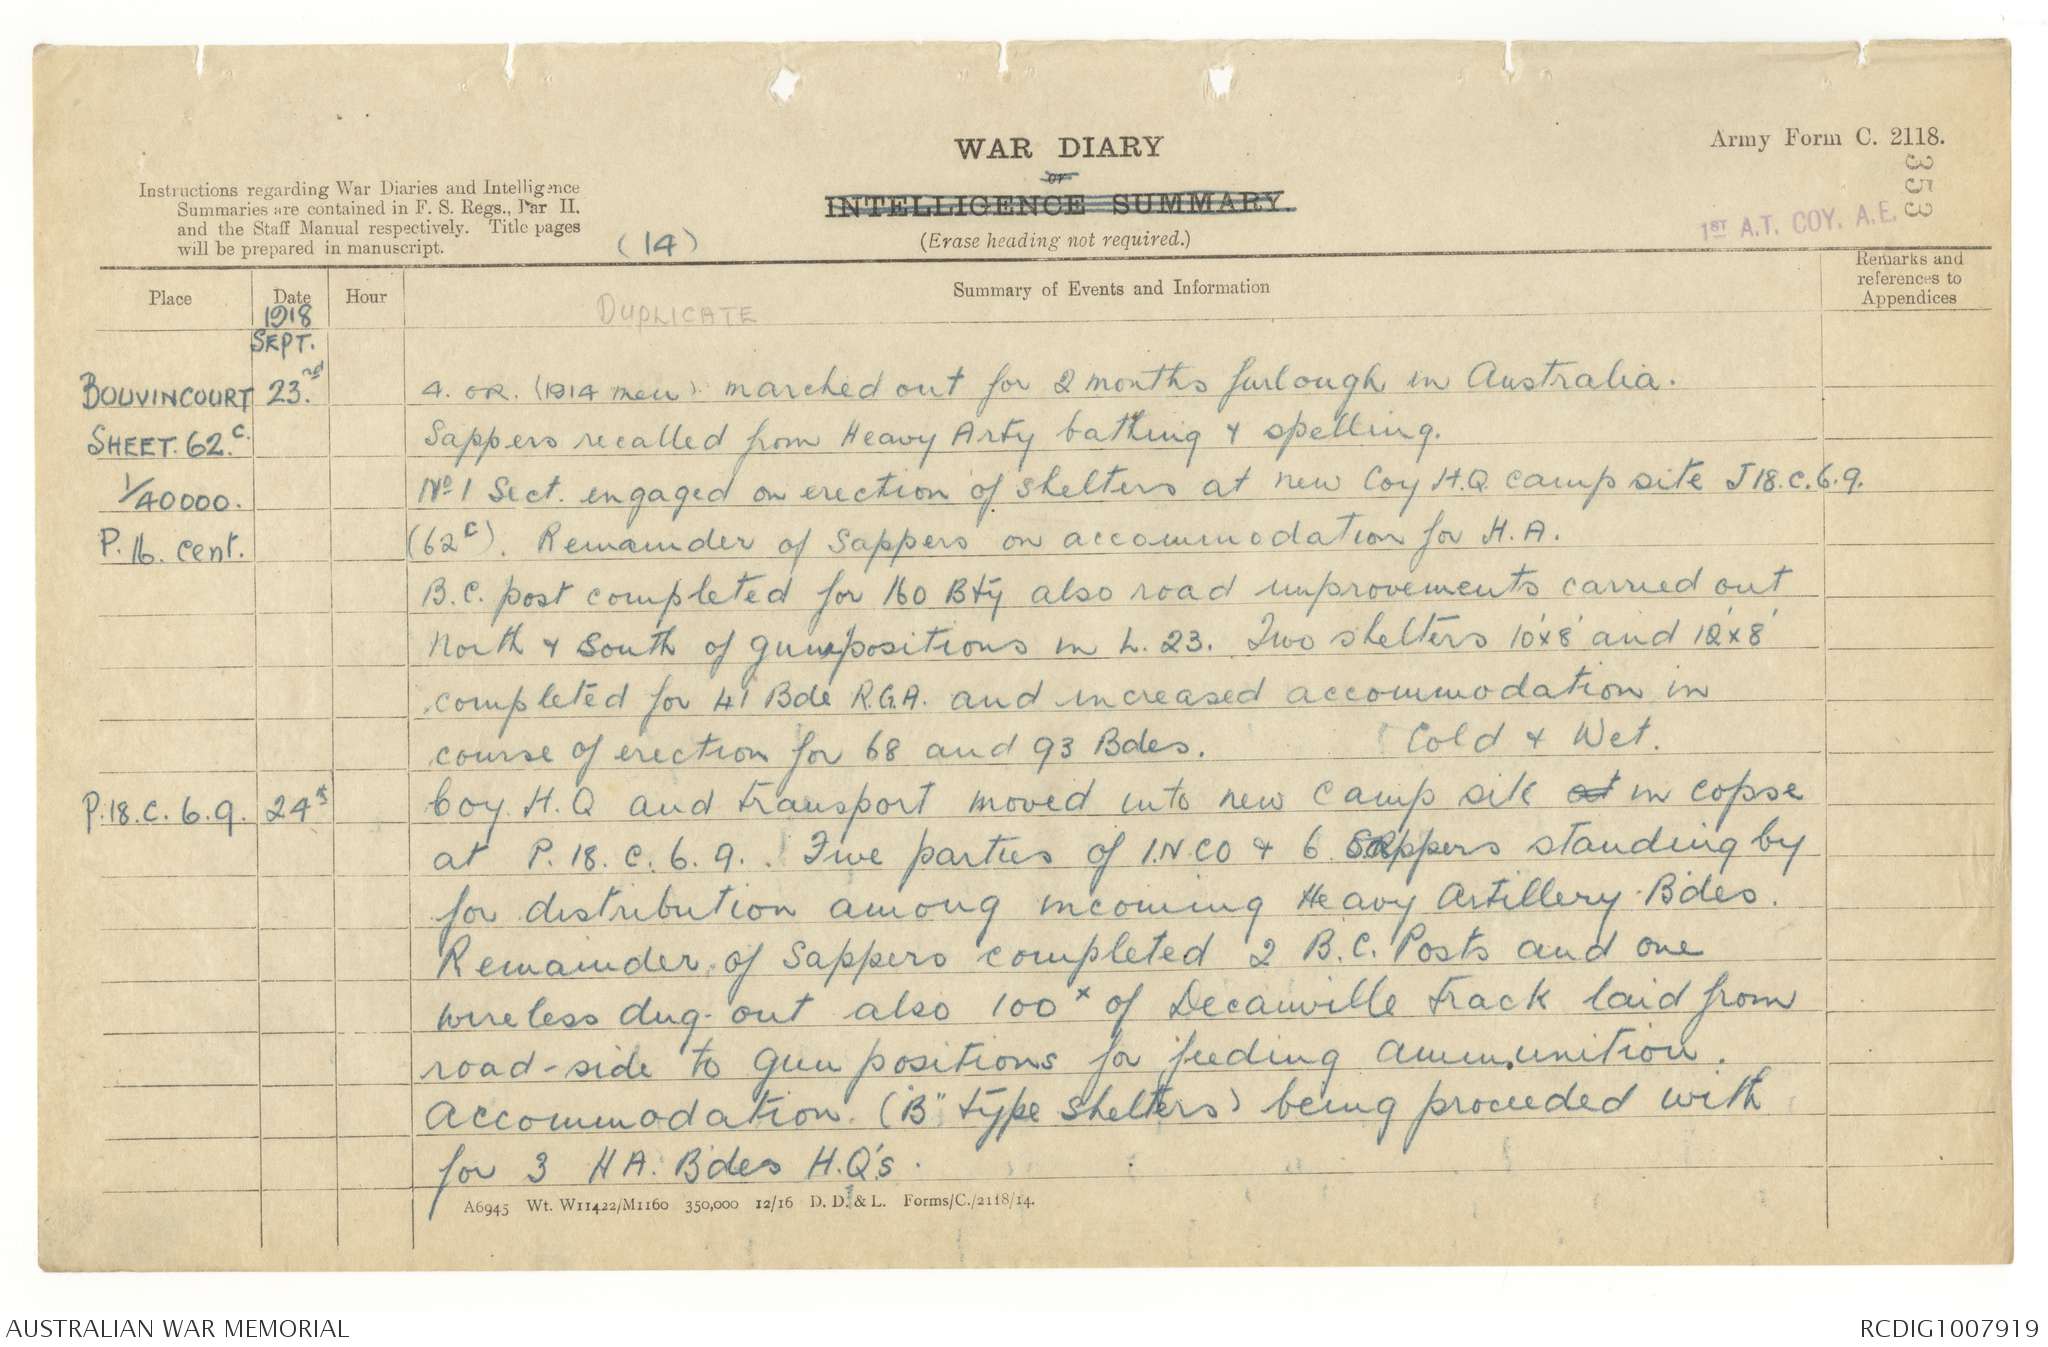 WAR DIARY
or
INTELLIGENCE SUMMARY.
(Erase heading not required.)
Army Form C. 2118.
353
1ST A.T. COY. A.E.
Instructions regarding War Diaries and Intelligence
Summaries are contained in F. S. Regs., Par II.
and the Staff Manual respectively. Title pages
will be prepared in manuscript.
(14)
Place
Date
Hour
Summary of Events and Information
Remarks and
references to
Appendices
DUPLICATE
1918
SEPT.
BOUVINCOURT 23.nd 4. OR. (1914 men) marched out for 2 months furlough in Australia.
SHEET. 62.c. Sappers recalled from Heavy Arty bathing & spelling.
1/40000. No 1 Sect. engaged on erection of shelters at new Coy H.Q. camp site J18.c.6.9.
P. 16. cent. (62c). Remainder of Sappers on accommodation for H.A.
B.C. post completed for 160 Bty also road improvements carried out
North & South of gun positions in L. 23. Two shelters 10'x8' and 12'x8'
completed for 41 Bde R.G.A. and increased accommodation in
course of erection for 68 and 93 Bdes. Cold & Wet.
P.18.C.6.9. 24th Coy. H.Q and transport moved into new camp site at in copse
at P. 18. C. 6. 9. Five parties of 1.N.CO & 6 Sappers standing by
for distribution among incoming Heavy Artillery Bdes.
Remainder of Sappers completed 2 B.C. Posts and one
wireless dug-out also 100x of Decauville track laid from
road-side to gun positions for feeding ammunition.
Accommodation ("B" type shelters) being proceeded with
for 3 HA. Bdes H.Q's.
A6945 Wt. W11422/M1160 350,000 12/16 D. D. & L. Forms/C./2118/14.
AUSTRALIAN WAR MEMORIAL
RCDIG1007919